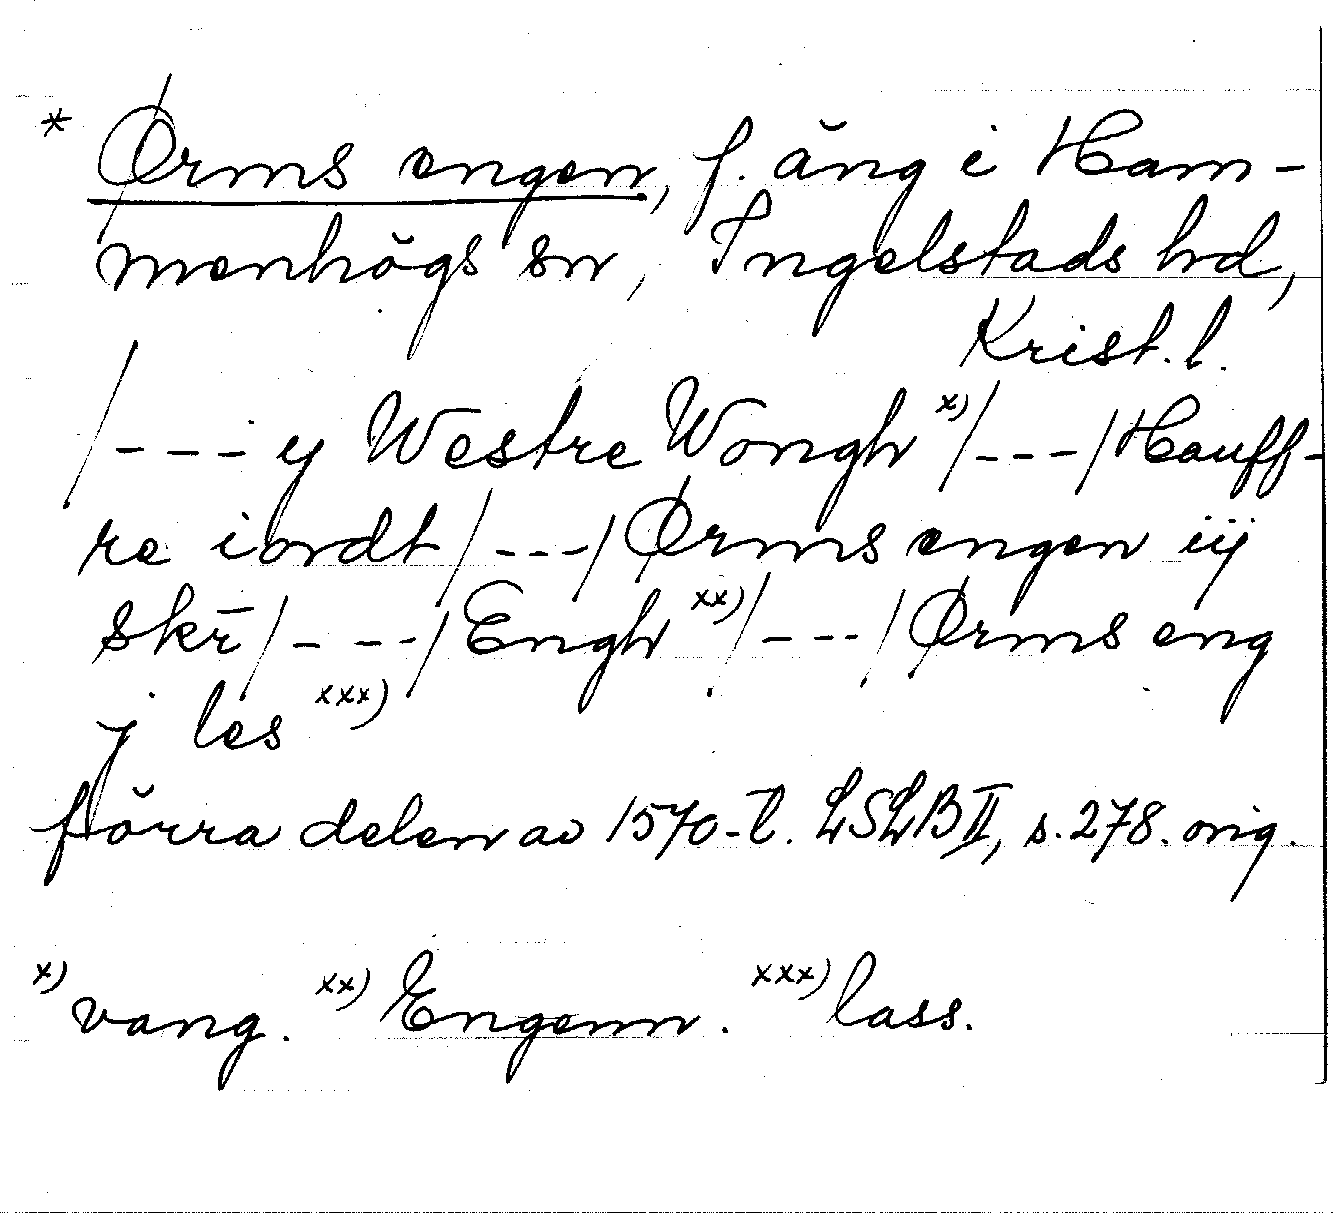 * Ørms engen, f. äng i Ham-
menhögs sn, Ingelstads hd,
Krist. l.
/---y Westre Wongh x)/---/Hauff-
re iordt/---/Ørms engen iij
skr̄/---/Engh xx)/---/Ørms eng
j les xxx)
förra delen av 1570-t. LSLB II, s. 278. orig.
x) vang. xx) Engenn. xxx) lass.